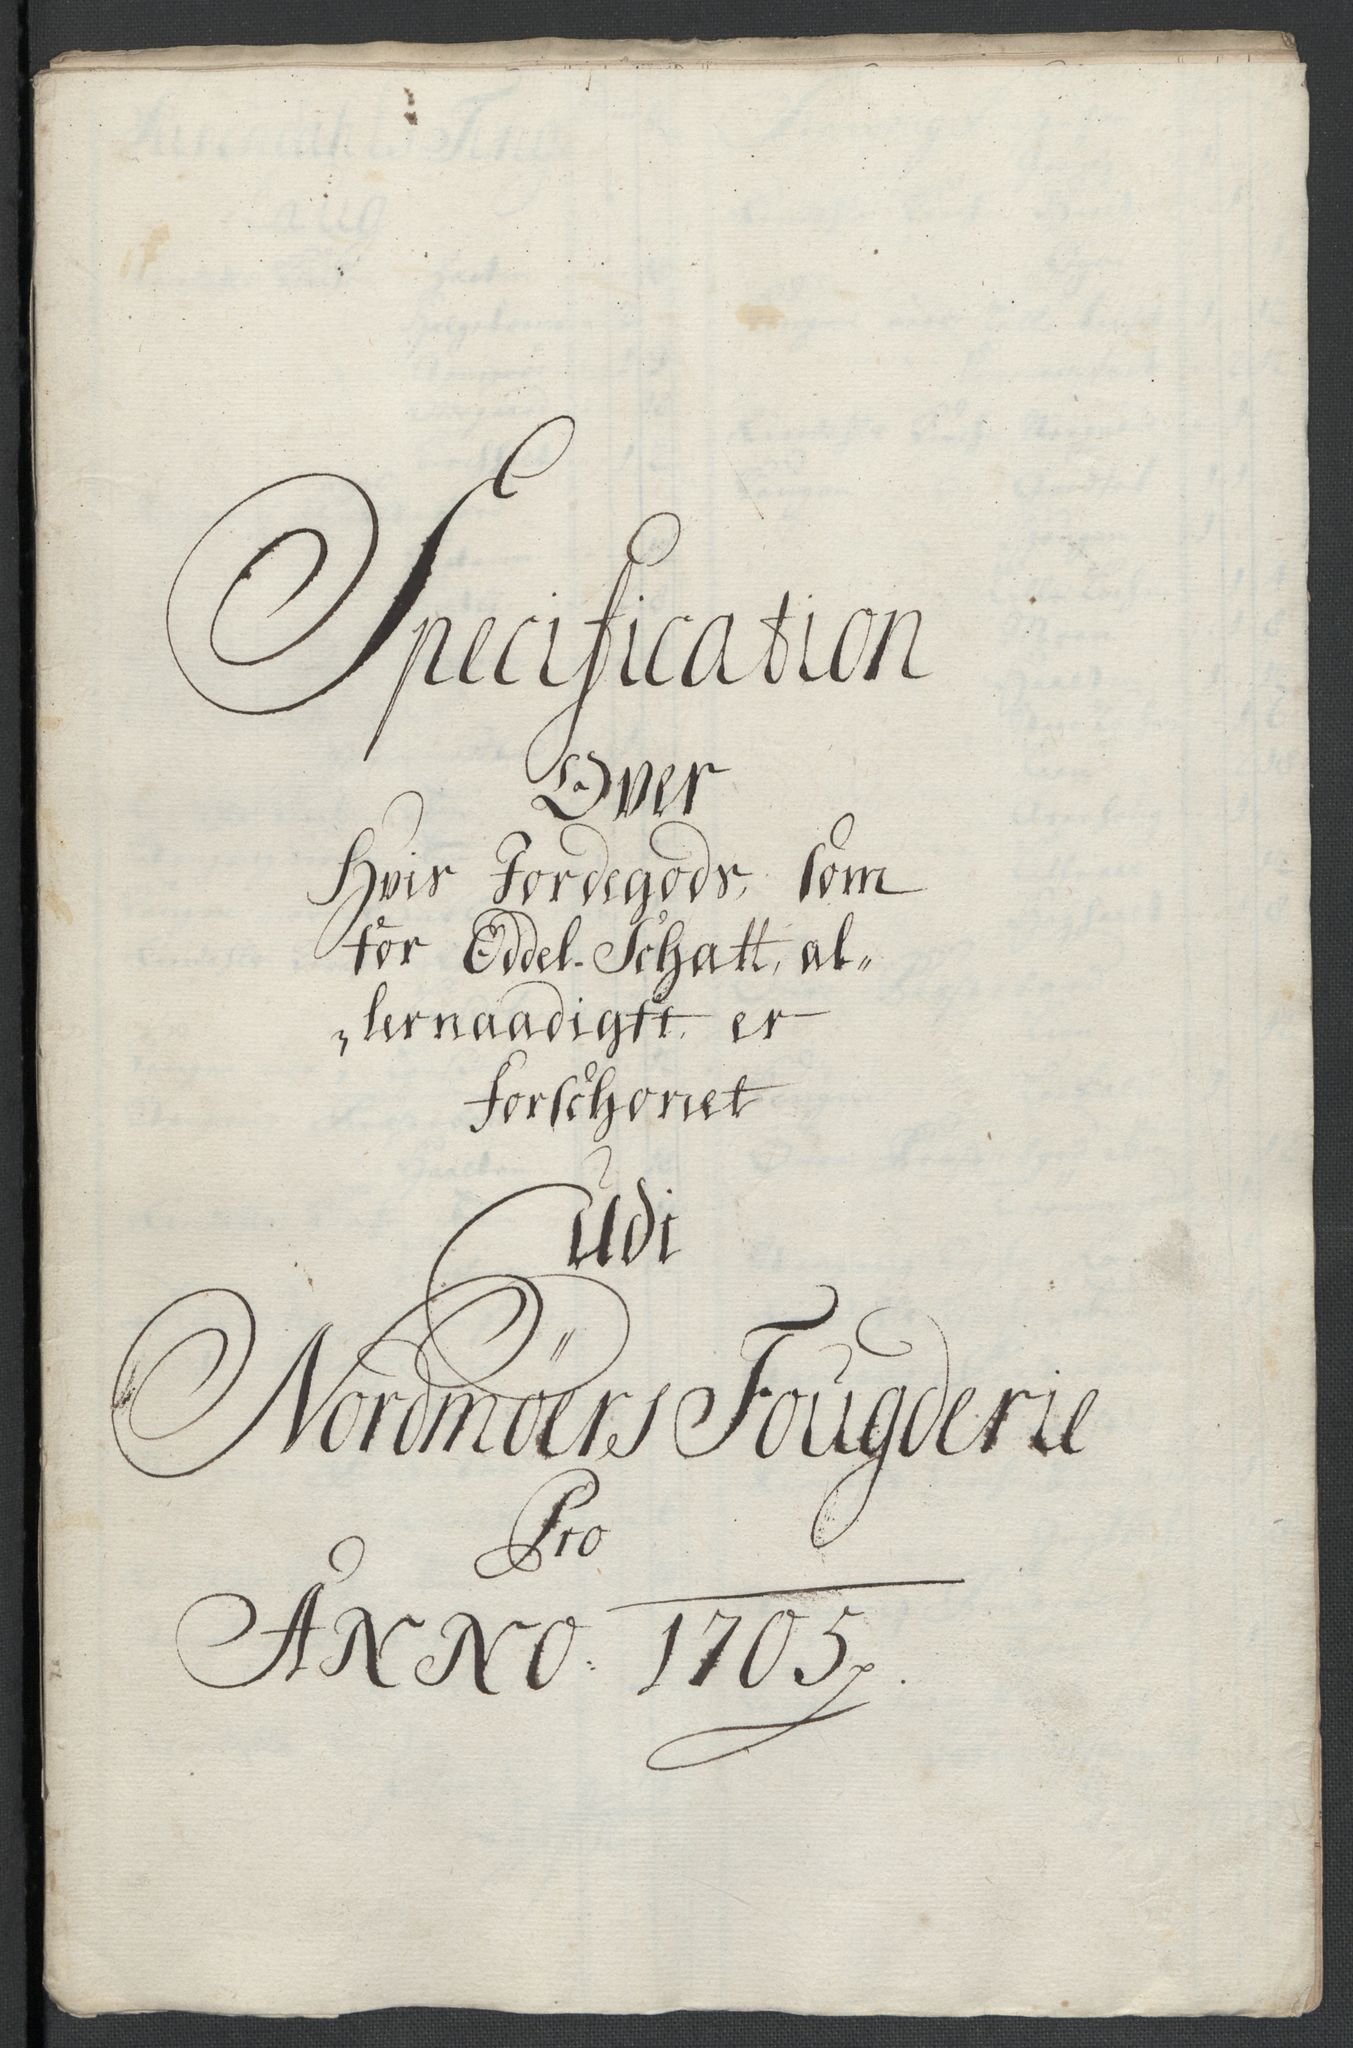 Specification
Over
Hvis Jordegods, som
for Oddel-Schatt, al„
„lernaadigst er
forschonet
Udi
Nordmöers Fougderie
Pro
ANNO. 1705.